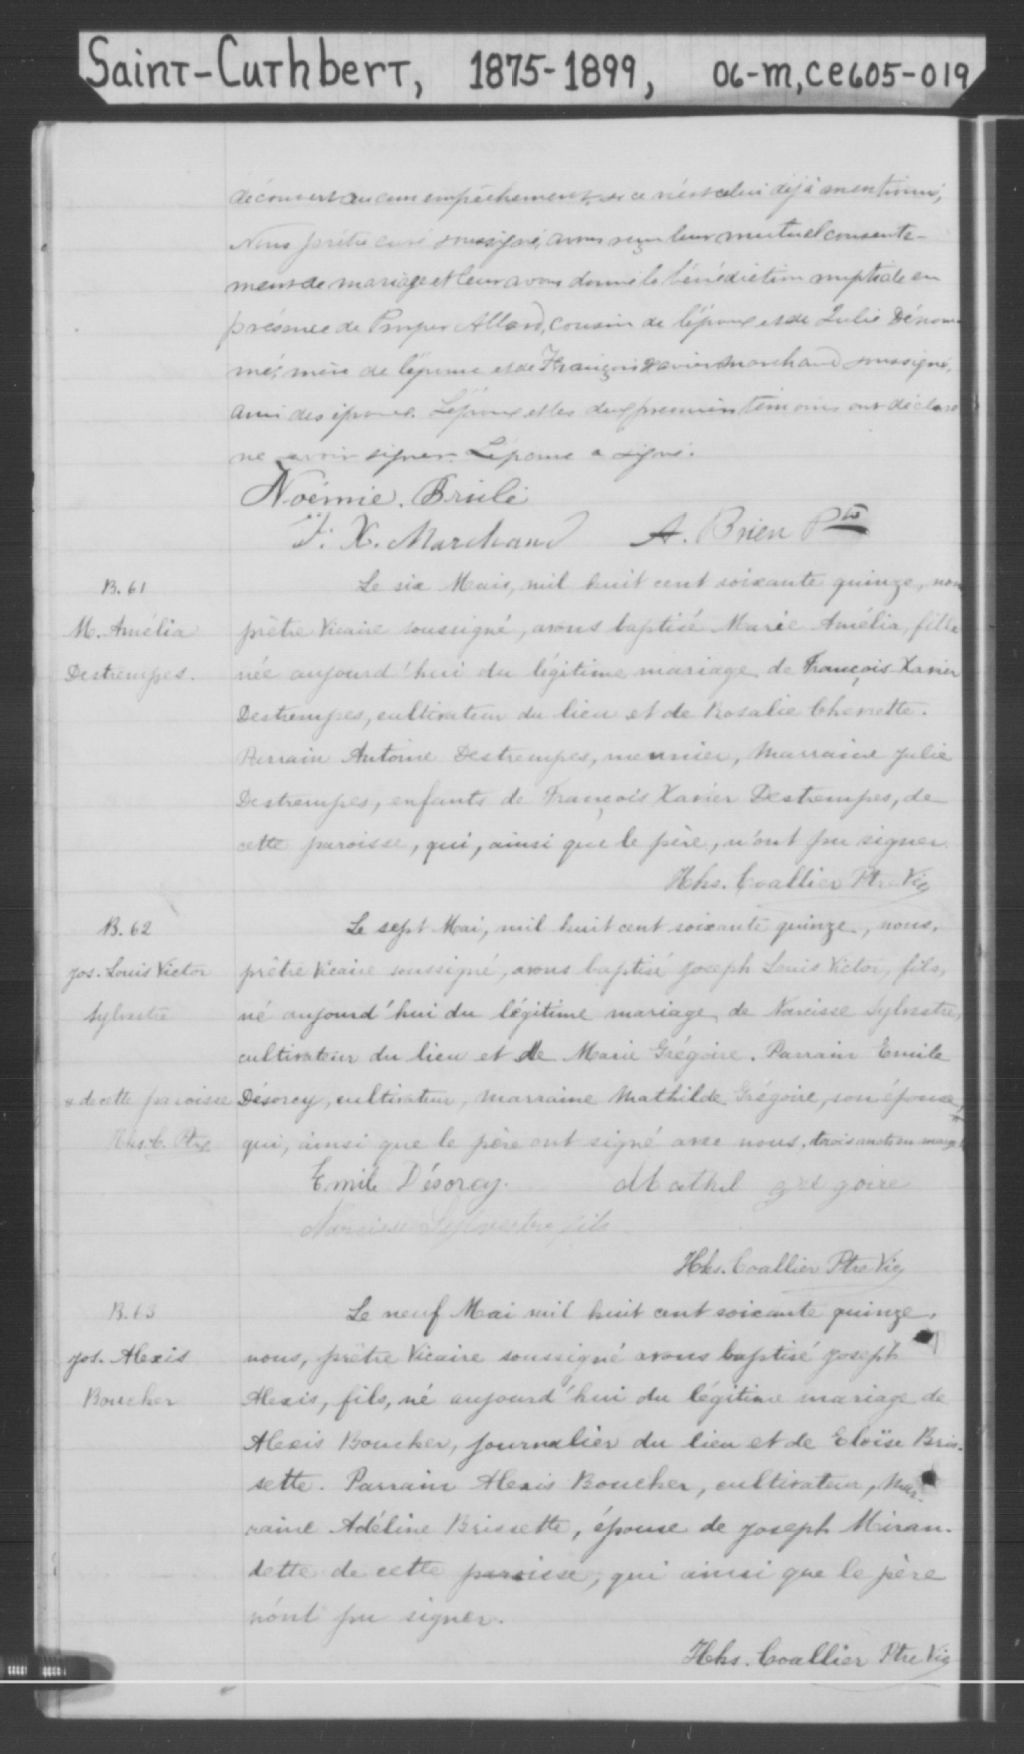 Saint-Cuthbert, 1875-1899, 06-M, CE605-019
découvert aucun empêchement, si ce n'est celui déjà mentionné,
Nous prêtre curé soussigné, avons reçu leur mutuel consente-
ment de mariage et leur avons donné la bénédiction nuptiale en
présence de Prosper Allard, cousin de l'époux et de Julie Dénom-
mé, mère de l'épouse et de François Xavier Marchand soussigné,
ami des époux. L'époux et les deux premiers témoins ont déclaré
ne savoir signer. L'épouse a signé.
Noémie. Brulé
F. X. Marchand A. Brien Ptre
B. 61
M. Amélia
Destrempes.
Le six Mais, mil huit cent soixante quinze, nous
prêtre Vicaire soussigné, avons baptisé Marie Amélia, fille
née aujourd'hui du légitime mariage de François Xavier
Destrempes, cultivateur du lieu et de Rosalie Chenette.
Parrain Antoine Destrempes, meunier, Marraine Julie
Destrempes, enfants de François Xavier Destrempes, de
cette paroisse, qui, ainsi que le père, n'ont pu signer.
Hhs. Coallier Ptre Vic
B. 62
Jos. Louis Victor
Sylvestre
Le sept Mai, mil huit cent soixante quinze, nous,
prêtre Vicaire soussigné, avons baptisé Joseph Louis Victor, fils,
né aujourd'hui du légitime mariage de Narcisse Sylvestre,
cultivateur du lieu et de Marie Grégoire. Parrain Emile
x de cette paroisse
Hhs. C. Ptre
Désorcy, cultivateur, marraine Mathilde Grégoire, son épouse, x
qui, ainsi que le père ont signé avec nous. trois mots en marge
Emile Désorcy. Mathil gre goire
Narcisse Sylvestre fils
Hhs. Coallier Ptre Vic
B. 63
Jos. Alexis
Boucher
Le neuf Mai mil huit cent soixante quinze,
nous, prêtre Vicaire soussigné avons baptisé Joseph
Alexis, fils, né aujourd'hui du légitime mariage de
Alexis Boucher, journalier du lieu et de Eloïse Bris-
sette. Parrain Alexis Boucher, cultivateur, Mar-
raine Adéline Brissette, épouse de Joseph Miran-
dette de cette paroisse, qui ainsi que le père
n'ont pu signer.
Hhs. Coallier Ptre Vic